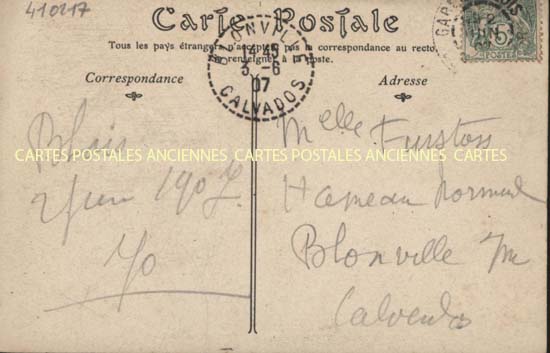 410117
Carte Postale
Tous les pays étrangers n'acceptent pas la correspondance au recto,
se renseigner à la Poste.
Correspondance
Adresse
BLONVILLE
14-45
3-6
07
CALVADOS
5
CARTES POSTALES ANCIENNES CARTES POSTALES ANCIENNES CARTES
2 Juin 1907
Melle
Hameau normand
Blonville
Calvados